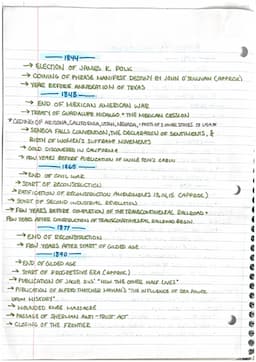 1844
→ ELECTION OF JAMES K. POLK
→ COINING OF PHRASE MANIFEST DESTINY BY JOHN O'SULLIVAN (APPROX)
→ YEAR BEFORE ANNEXATION OF TEXAS
1848
→ END OF MEXICAN AMERICAN WAR
→ TREATY OF GUADALUPE HIDALGO * THE MEXICAN CESSION
* CEDING OF ARIZONA, CALIFORNIA, UTAH, NEVADA, + PARTS OF OTHER STATES TO USA *
→ SENECA FALLS CONVENTION, THE DECLARATION OF SENTIMENTS, &
BIRTH OF WOMEN'S SUFFRAGE MOVEMENTS
→ GOLD DISCOVERED IN CALIFORNIA
→ FEW YEARS BEFORE PUBLICATION OF UNCLE TOM'S CABIN
1865
→ END OF CIVIL WAR
→ START OF RECONSTRUCTION
→ RATIFICATION OF RECONSTRUCTION AMENDMENTS 13, 14, 15 (APPROX)
→ START OF SECOND INDUSTRIAL REVOLUTION
→ FEW YEARS BEFORE COMPLETION OF THE TRANSCONTINENTAL RAILROAD *
FEW YEARS AFTER CONSTRUCTION OF TRANSCONTINENTAL RAILROAD BEGAN
1877
→ END OF RECONSTRUCTION
→ FEW YEARS AFTER START OF GILDED AGE
1890
→ END OF GILDED AGE
→ START OF PROGRESSIVE ERA (APPROX)
→ PUBLICATION OF JACOB RIIS' "HOW THE OTHER HALF LIVES"
→ PUBLICATION OF ALFRED THAYER MAHAN'S "THE INFLUENCE OF SEA POWER
UPON HISTORY"
→ WOUNDED KNEE MASSACRE
→ PASSAGE OF SHERMAN ANTI-TRUST ACT
→ CLOSING OF THE FRONTIER